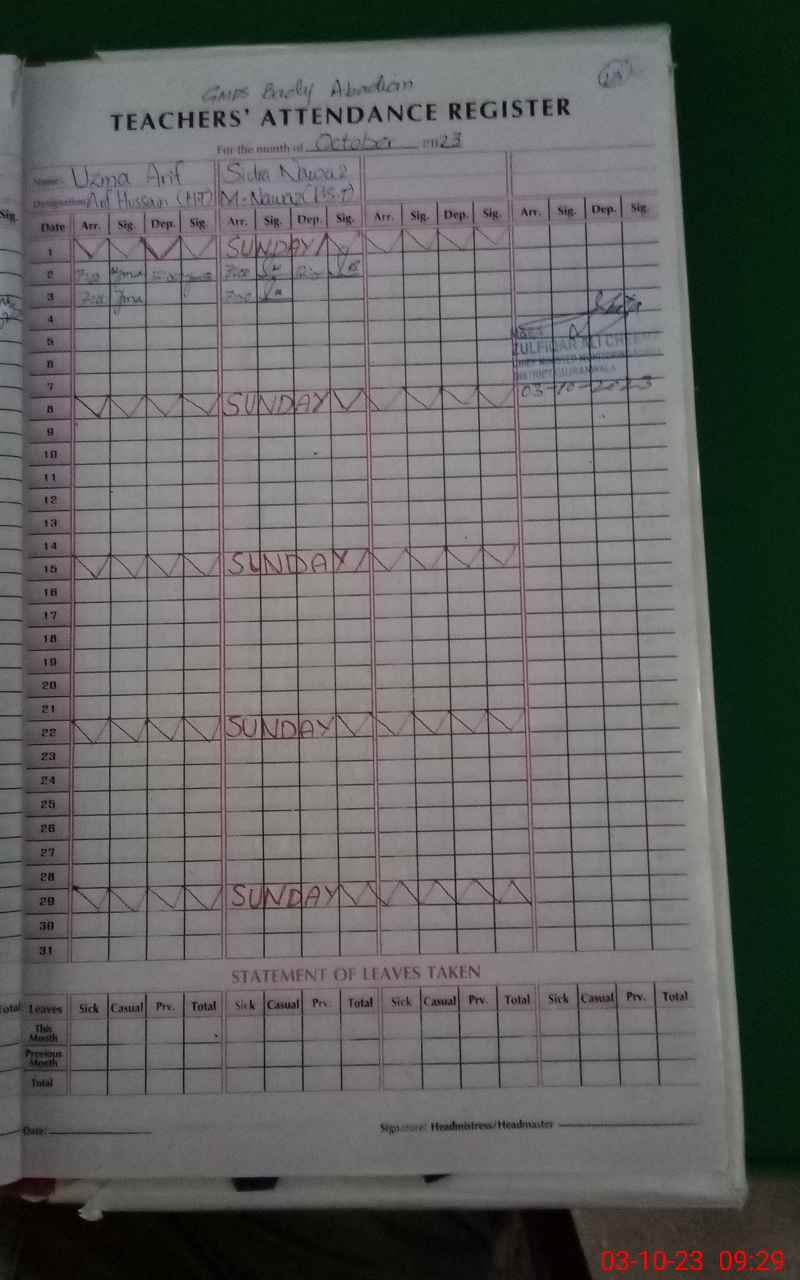 GMPS Abadian
TEACHERS' ATTENDANCE REGISTER
For the month of October 2023
Name: Uzma Arif Sidra Nawaz
Designation Arif Hussain M. Nawaz
Date Arr. Sig. Dep. Sig. Arr. Sig. Dep. Sig. Arr. Sig. Dep. Sig. Arr. Sig. Dep. Sig.
1 SUNDAY
2
3
4
5
ZULFIQAR ALI
6
7
03-10-2023
8 SUNDAY
9
10
11
12
13
14
15 SUNDAY
16
17
18
19
20
21
22 SUNDAY
23
24
25
26
27
28
29 SUNDAY
30
31
STATEMENT OF LEAVES TAKEN
Leaves Sick Casual Prv. Total Sick Casual Prv. Total Sick Casual Prv. Total Sick Casual Prv. Total
This Month
Previous Month
Total
Date: Signature: Headmistress/Headmaster
03-10-23 09:29